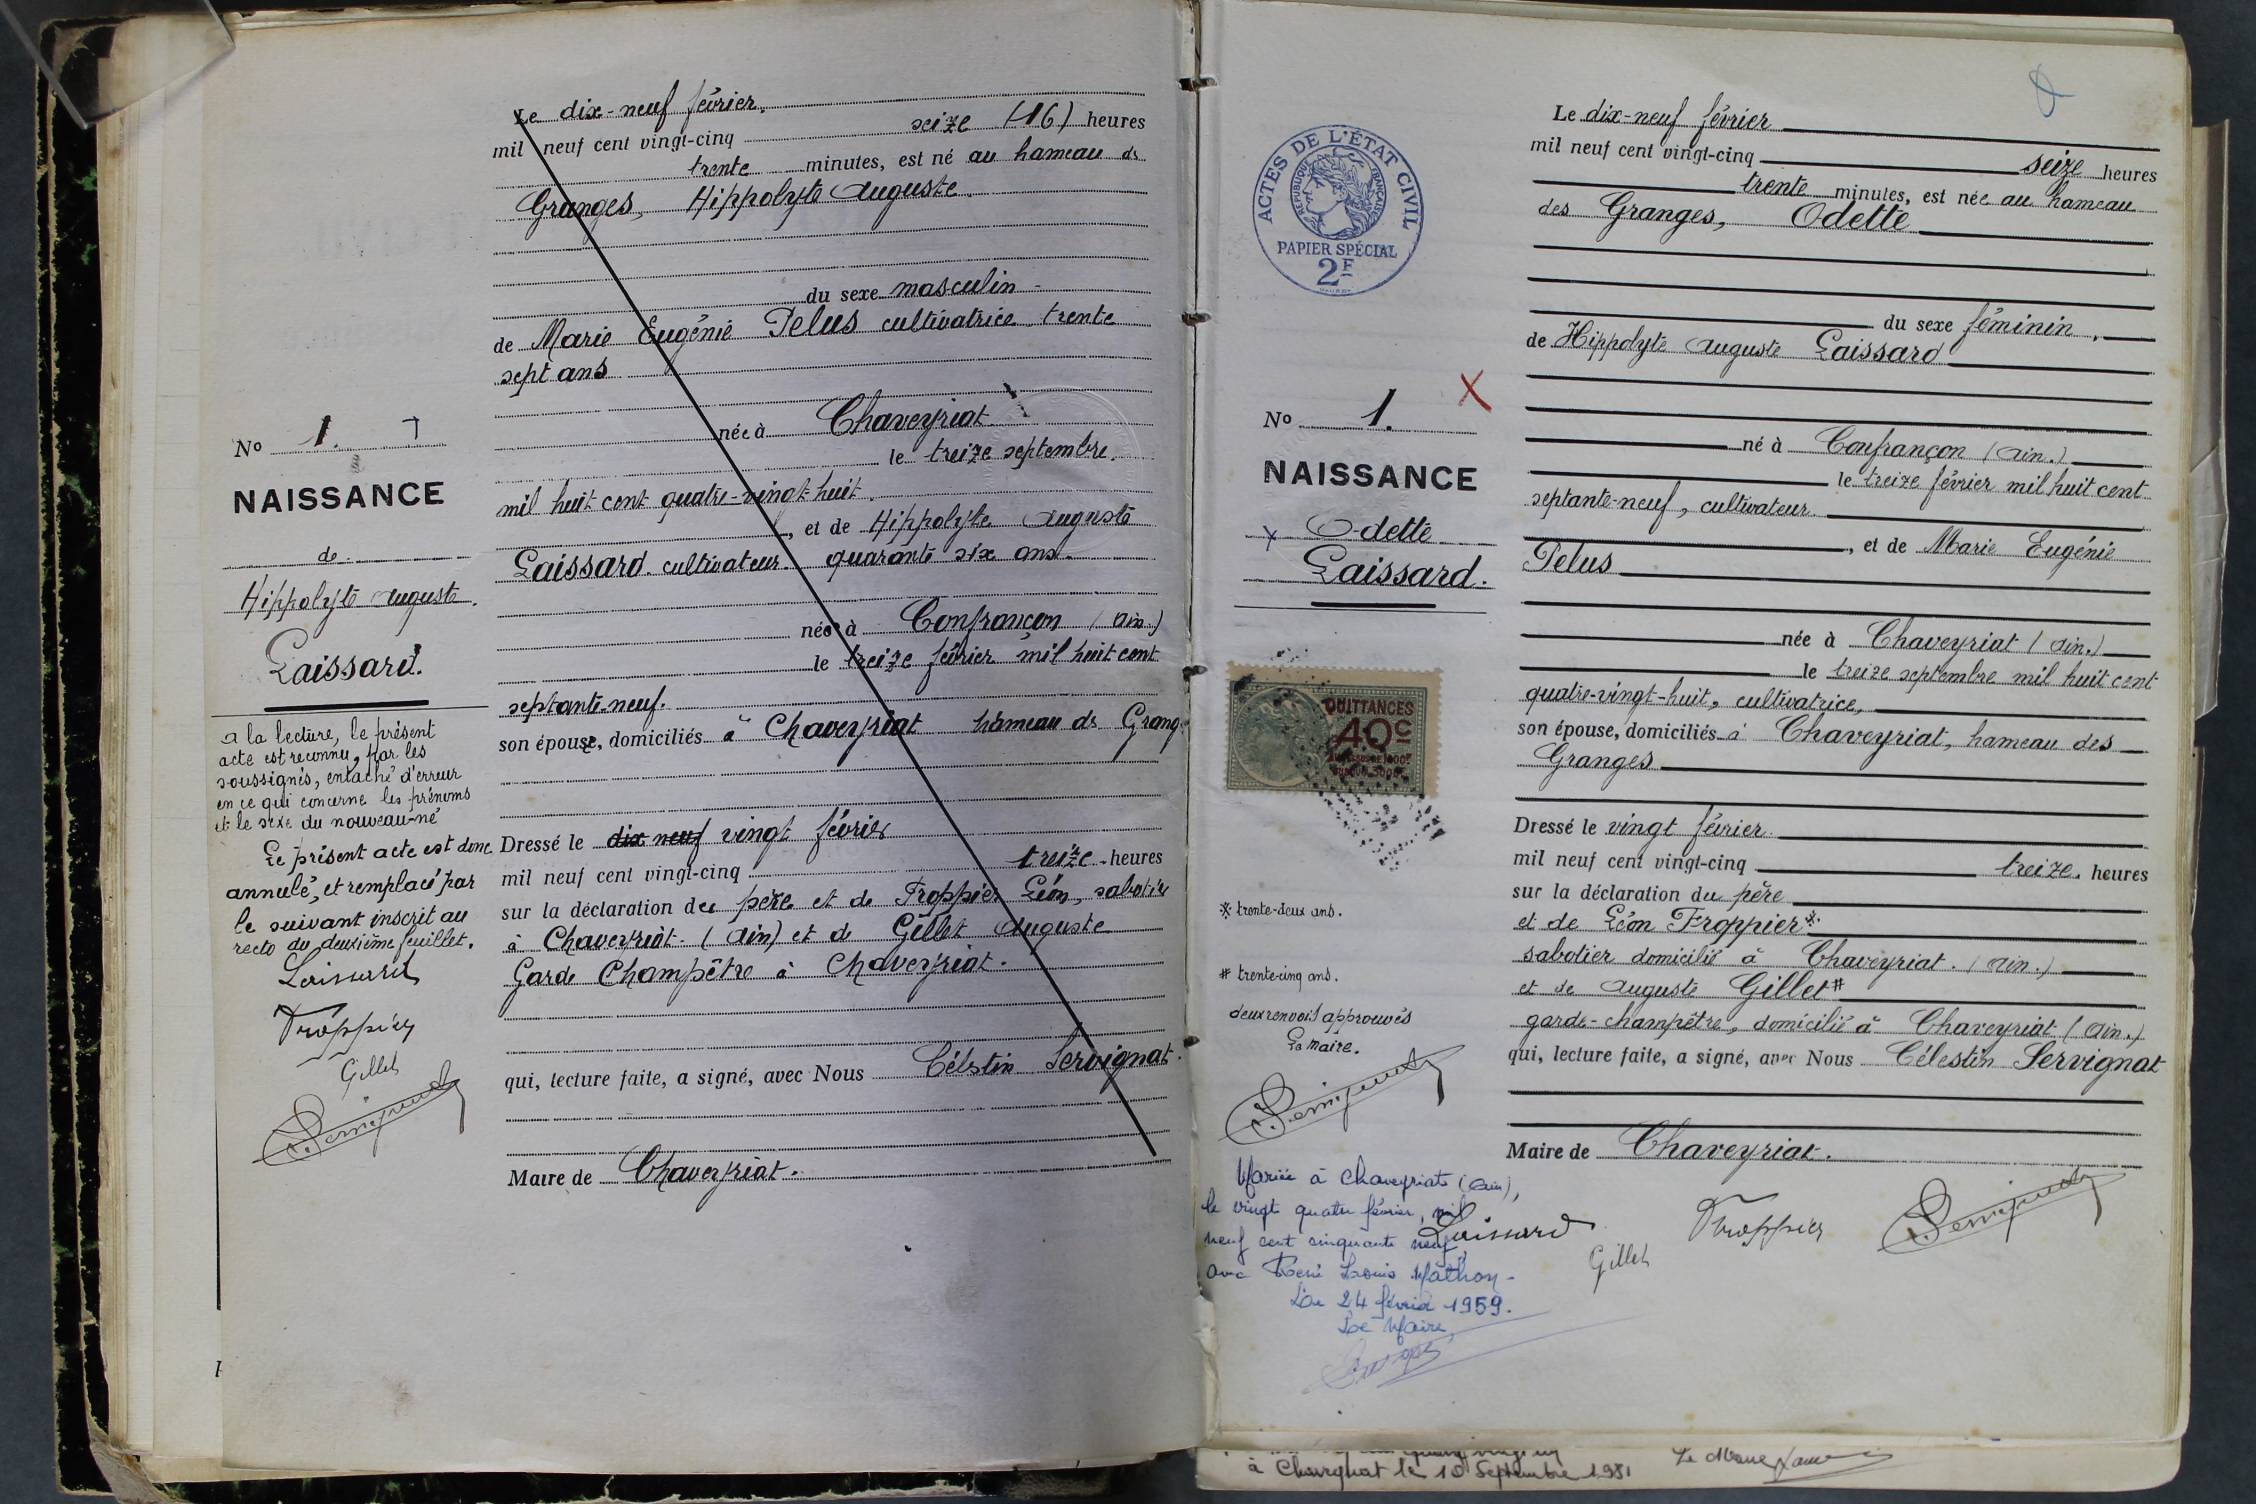 Le dix-neuf février.
mil neuf cent vingt-cinq seize (16) heures
trente minutes, est né au hameau de
Granges, Hippolyte Auguste
du sexe masculin
de Marie Eugénie Pelus cultivatrice trente
sept ans
née à Chaveyriat
le treize septembre.
mil huit cent quatre-vingt-huit.
, et de Hippolyte Auguste
Laissard cultivateur quarante six ans
né à Confrançon (Ain)
le treize février mil huit cent
septante-neuf.
son épouse, domiciliés à Chaveyriat hameau de Grang
Dressé le dix neuf vingt février
mil neuf cent vingt-cinq treize heures
sur la déclaration du père et de Froppier Léon, sabotier
à Chaveyriat (Ain) et de Gillet Auguste
Garde Champêtre à Chaveyriat.
qui, lecture faite, a signé, avec Nous Célestin Servignat.
Maire de Chaveyriat.
No 1.
NAISSANCE
de
Hippolyte Auguste.
Laissard.
A la lecture, le présent
acte est reconnu, par les
soussignés, entaché d'erreur
en ce qui concerne les prénoms
et le sexe du nouveau-né
Le présent acte est donc
annulé, et remplacé par
le suivant inscrit au
recto du deuxième feuillet.
Laissard
Froppier
Gillet
Servignat
ACTES DE L'ÉTAT CIVIL
RÉPUBLIQUE FRANÇAISE
PAPIER SPÉCIAL
2F
No 1.
NAISSANCE
Odette
Laissard.
QUITTANCES
40c
* trente-deux ans.
# trente-cinq ans.
deux renvois approuvés
Le Maire.
Servignat
Mariée à Chaveyriat (Ain),
le vingt quatre février, mil
neuf cent cinquante neuf,
avec René Louis Mathon -
Le 24 février 1959.
Le Maire,
Le dix-neuf février
mil neuf cent vingt-cinq seize heures
trente minutes, est née au hameau
des Granges, Odette
du sexe féminin,
de Hippolyte Auguste Laissard
né à Confrançon (Ain.)
le treize février mil huit cent
septante-neuf, cultivateur
, et de Marie Eugénie
Pelus
née à Chaveyriat (Ain.)
le treize septembre mil huit cent
quatre-vingt-huit, cultivatrice,
son épouse, domiciliés à Chaveyriat, hameau des
Granges
Dressé le vingt février
mil neuf cent vingt-cinq treize heures
sur la déclaration du père
et de Léon Froppier*
sabotier domicilié à Chaveyriat. (Ain.)
et de Auguste Gillet#
garde-champêtre, domicilié à Chaveyriat (Ain.)
qui, lecture faite, a signé, avec Nous Célestin Servignat
Maire de Chaveyriat.
Laissard
Gillet
Froppier
Servignat
le 10 Septembre 1981
Le Maire